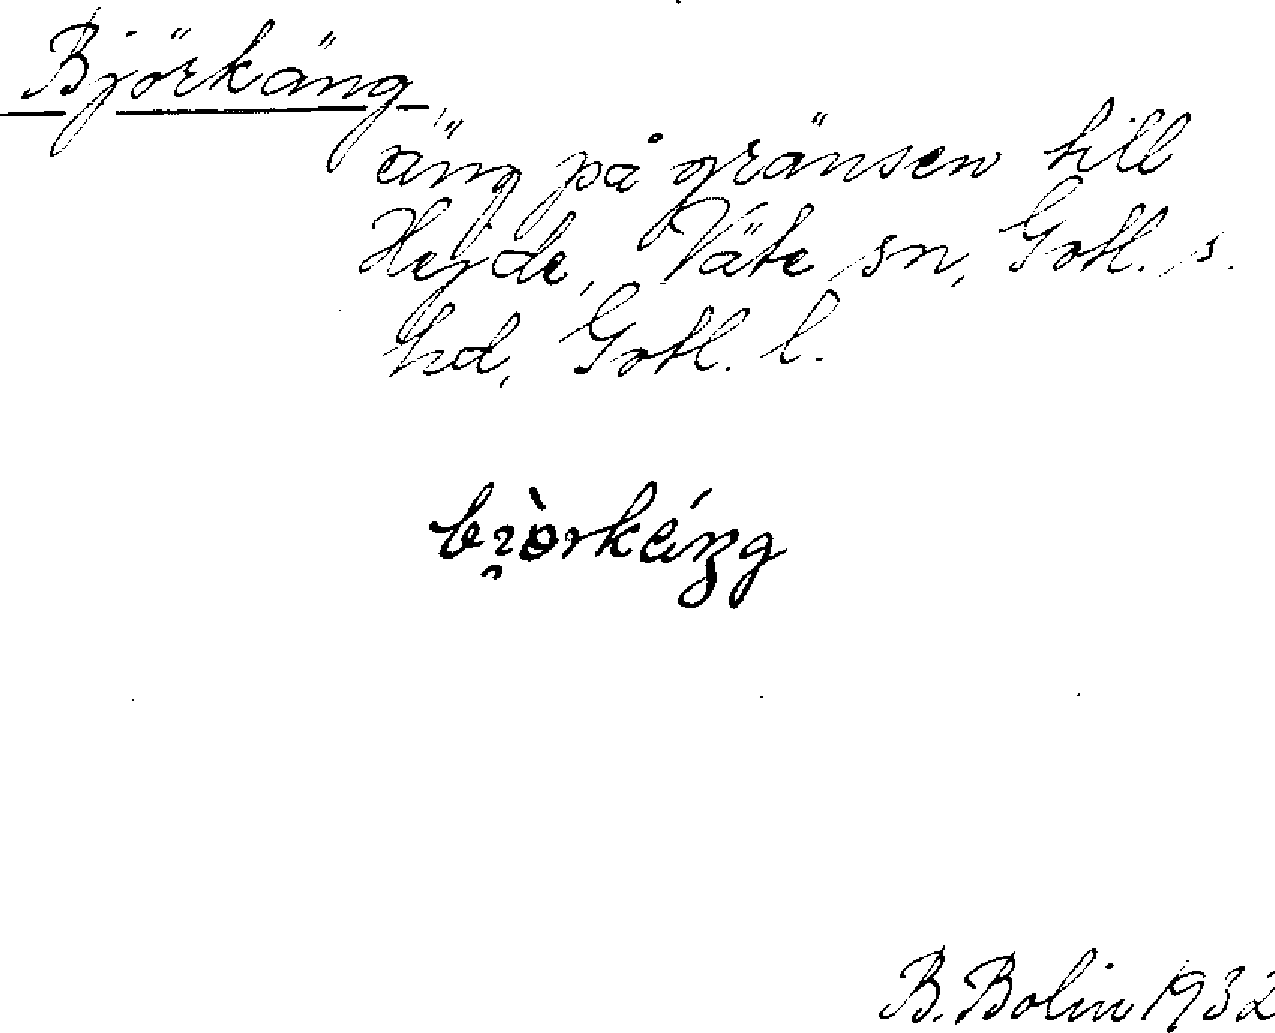 Björkäng
äng på gränsen till
Hejde, Väte sn, Gotl. s.
hd, Gotl. l.
B. Bolin 1932